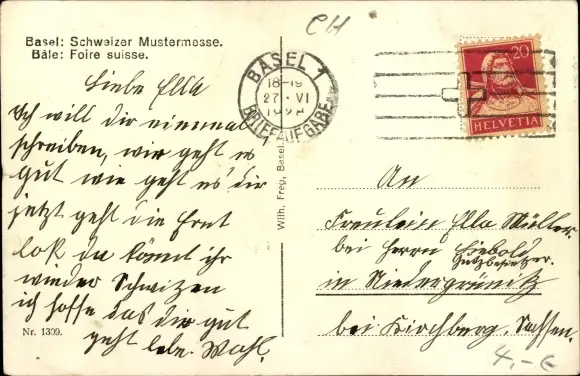 CH
Basel: Schweizer Mustermesse.
Bâle: Foire suisse.
BASEL 1
18-19
27. VI
BRIEFAUFGABE
20
HELVETIA
Liebe Ella
Ich will dir einmal
schreiben, wir geht es
gut wie geht es dir
jetzt geht die Ernt
lok da könnt ihr
wieder Schwizen
ich hoffe das dir gut
geht lebe Wohl.
Nr. 1309.
Wilh. Frey, Basel.
An
Fräulein Ella Müller
bei Herrn
Gutzbesitzer.
in Niedergräfnitz
bei Kirchberg, Sachsen.
4,- €